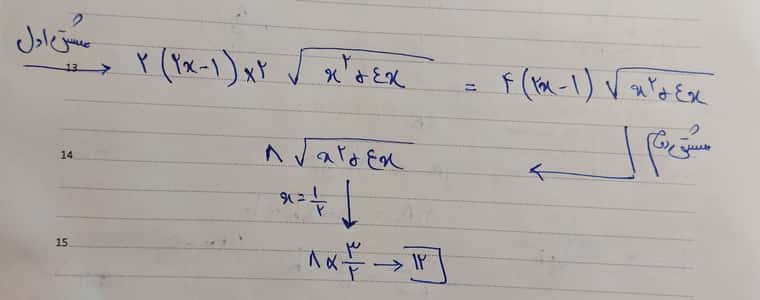 مشتق اول → ۲(۲x-۱)×۲ √(x²+٤x) = ۴(۲x-۱)√(x²+٤x)
13
مشتق دوم
14 ۸√(x²+٤x)
x=۱/۲
15 ۸×۳/۲ → ۱۲